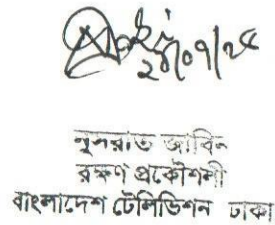 ২৮/০৭/২৫
নুসরাত জাবিন
রক্ষণ প্রকৌশলী
বাংলাদেশ টেলিভিশন ঢাকা